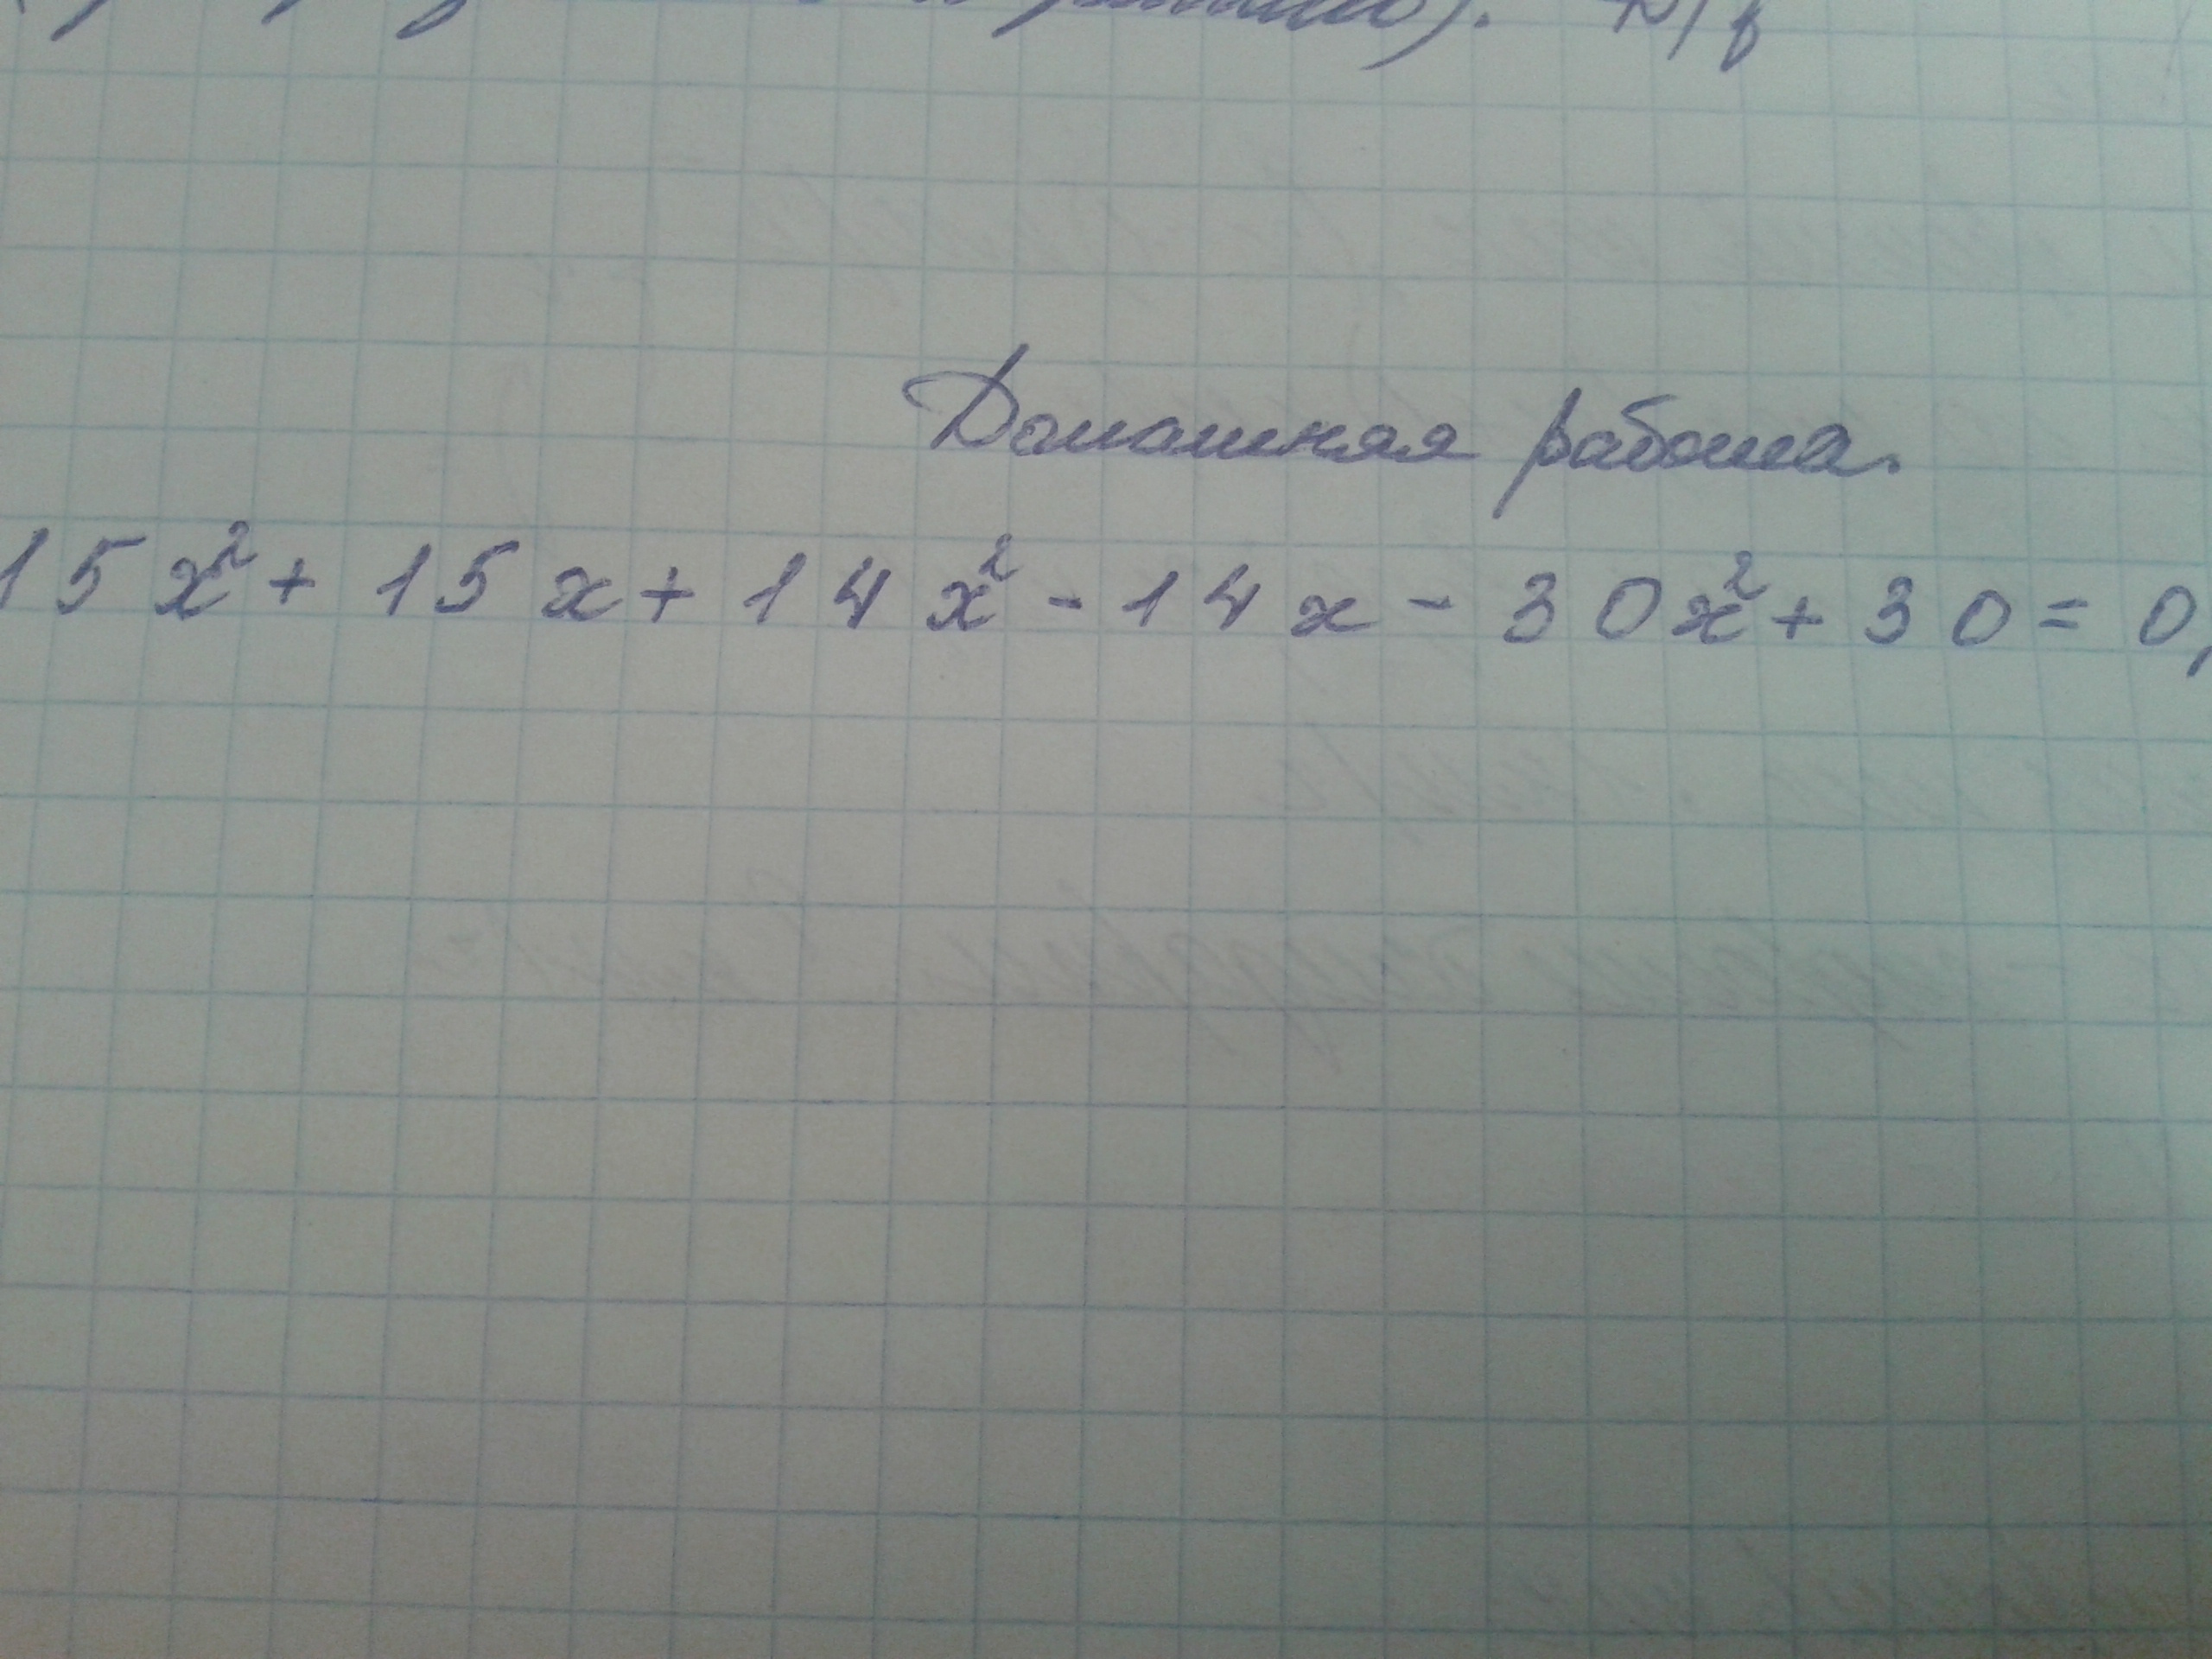 Домашняя работа.
15x² + 15x + 14x² - 14x - 30x² + 30 = 0,